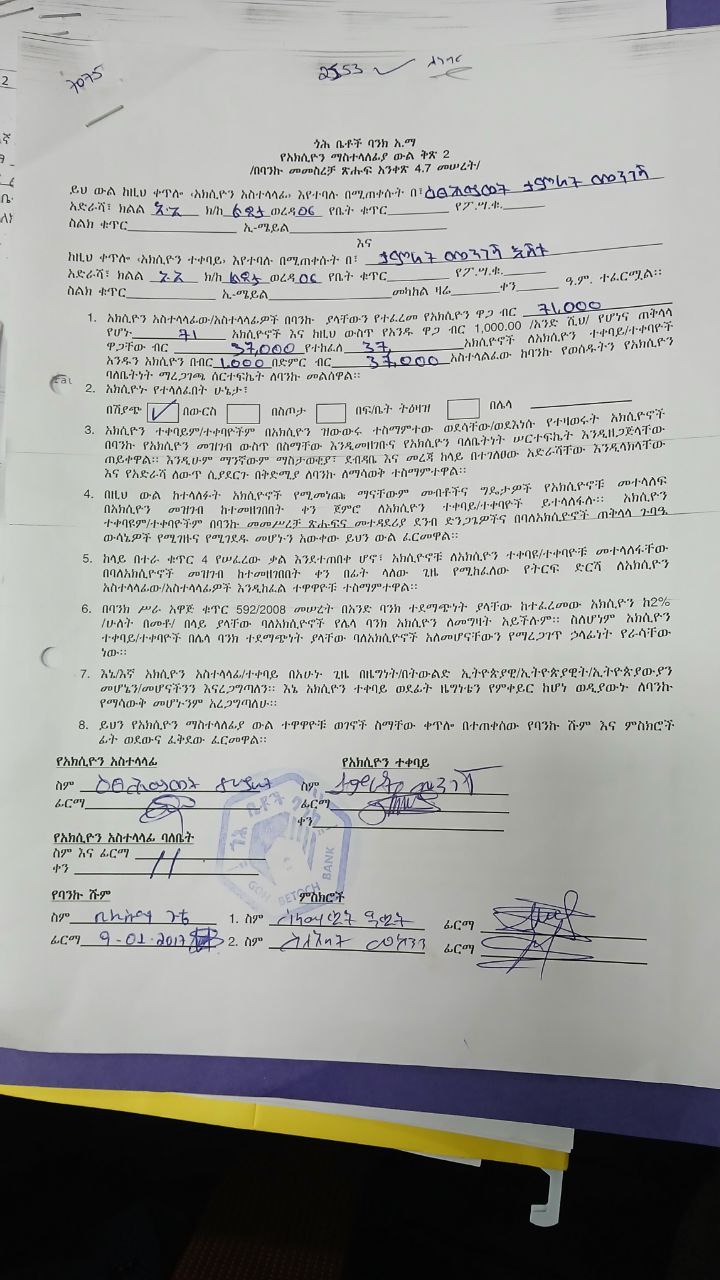 7075
2553
ጎሕ ቤቶች ባንክ አ.ማ
የአክሲዮን ማስተላለፊያ ውል ቅጽ 2
/በባንኩ መመስረቻ ጽሑፍ አንቀጽ 4.7 መሠረት/
ይህ ውል ከዚህ ቀጥሎ ‹አክሲዮን አስተላላፊ› እየተባሉ በሚጠቀሱት በ፣ ታምራት መንገሻ
አድራሻ፣ ክልል አ.አ ክ/ከ ልደታ ወረዳ 06 የቤት ቁጥር የፖ.ሣ.ቁ.
ስልክ ቁጥር ኢ-ሜይል
እና
ከዚህ ቀጥሎ ‹አክሲዮን ተቀባይ› እየተባሉ በሚጠቀሱት በ፣ ታምራት መንገሻ
አድራሻ፣ ክልል አ.አ ክ/ከ ልደታ ወረዳ 06 የቤት ቁጥር የፖ.ሣ.ቁ.
ስልክ ቁጥር ኢ-ሜይል መካከል ዛሬ ቀን ዓ.ም. ተፈርሟል።
1. አክሲዮን አስተላላፊው/አስተላላፊዎች በባንኩ ያላቸውን የተፈረመ የአክሲዮን ዋጋ ብር 71,000
የሆኑ 71 አክሲዮኖች እና ከዚህ ውስጥ የአንዱ ዋጋ ብር 1,000.00 /አንድ ሺህ/ የሆነና ጠቅላላ
ዋጋቸው ብር 37,000 የተከፈለ 37 አክሲዮኖች ለአክሲዮን ተቀባይ/ተቀባዮች
አንዱን አክሲዮን በብር 1,000 በድምር ብር 37,000 አስተላልፈው ከባንኩ የወሰዱትን የአክሲዮን
ባለቤትነት ማረጋገጫ ሰርተፍኬት ለባንኩ መልሰዋል።
2. አክሲዮኑ የተላለፈበት ሁኔታ፣
በሽያጭ ✓ በውርስ በስጦታ በፍ/ቤት ትዕዛዝ በሌላ
3. አክሲዮን ተቀባይም/ተቀባዮችም በአክሲዮን ዝውውሩ ተስማምተው ወደሳቸው/ወደእነሱ የተዛወሩት አክሲዮኖች
በባንኩ የአክሲዮን መዝገብ ውስጥ በስማቸው እንዲመዘገቡና የአክሲዮን ባለቤትነት ሠርተፍኬት እንዲዘጋጅላቸው
ጠይቀዋል። እንዲሁም ማንኛውም ማስታወቂያ፣ ደብዳቤ እና መረጃ ከላይ በተገለፀው አድራሻቸው እንዲላክላቸው
እና የአድራሻ ለውጥ ሲያደርጉ በቅድሚያ ለባንኩ ለማሳወቅ ተስማምተዋል።
4. በዚህ ውል ከተላለፉት አክሲዮኖች የሚመነጩ ማናቸውም መብቶችና ግዴታዎች የአክሲዮኖቹ መተላለፍ
በአክሲዮን መዝገብ ከተመዘገበበት ቀን ጀምሮ ለአክሲዮን ተቀባይ/ተቀባዮች ይተላለፋሉ። አክሲዮን
ተቀባዩም/ተቀባዮችም በባንኩ መመሥረቻ ጽሑፍና መተዳደሪያ ደንብ ድንጋጌዎችና በባለአክሲዮኖች ጠቅላላ ጉባዔ
ውሳኔዎች የሚገዙና የሚገደዱ መሆኑን አውቀው ይህን ውል ፈርመዋል።
5. ከላይ በተራ ቁጥር 4 የሠፈረው ቃል እንደተጠበቀ ሆኖ፣ አክሲዮኖቹ ለአክሲዮን ተቀባዩ/ተቀባዮቹ መተላለፋቸው
በባለአክሲዮኖች መዝገብ ከተመዘገበበት ቀን በፊት ላለው ጊዜ የሚከፈለው የትርፍ ድርሻ ለአክሲዮን
አስተላላፊው/አስተላላፊዎች እንዲከፈል ተዋዋዮቹ ተስማምተዋል።
6. በባንክ ሥራ አዋጅ ቁጥር 592/2008 መሠረት በአንድ ባንክ ተደማጭነት ያላቸው ከተፈረመው አክሲዮን ከ2%
/ሁለት በመቶ/ በላይ ያላቸው ባለአክሲዮኖች የሌላ ባንክ አክሲዮን ለመግዛት አይችሉም። ስለሆነም አክሲዮን
ተቀባይ/ተቀባዮች በሌላ ባንክ ተደማጭነት ያላቸው ባለአክሲዮኖች አለመሆናቸውን የማረጋገጥ ኃላፊነት የራሳቸው
ነው።
7. እኔ/እኛ አክሲዮን አስተላላፊ/ተቀባይ በአሁኑ ጊዜ በዜግነት/በትውልድ ኢትዮጵያዊ/ኢትዮጵያዊት/ኢትዮጵያውያን
መሆኔን/መሆናችንን እናረጋግጣለን። እኔ አክሲዮን ተቀባይ ወደፊት ዜግነቴን የምቀይር ከሆነ ወዲያውኑ ለባንኩ
የማሳውቅ መሆኑንም አረጋግጣለሁ።
8. ይህን የአክሲዮን ማስተላለፊያ ውል ተዋዋዮቹ ወገኖች ስማቸው ቀጥሎ በተጠቀሰው የባንኩ ሹም እና ምስክሮች
ፊት ወደውና ፈቅደው ፈርመዋል።
የአክሲዮን አስተላላፊ የአክሲዮን ተቀባይ
ስም ስም ታምራት መንገሻ
ፊርማ ፊርማ
ቀን
የአክሲዮን አስተላላፊ ባለቤት
ስም እና ፊርማ
ቀን
ጎሕ ቤቶች ባንክ
GOH BETOCH BANK
የባንኩ ሹም ምስክሮች
ስም 1. ስም ፊርማ
ፊርማ 9-01-2017 2. ስም ፊርማ